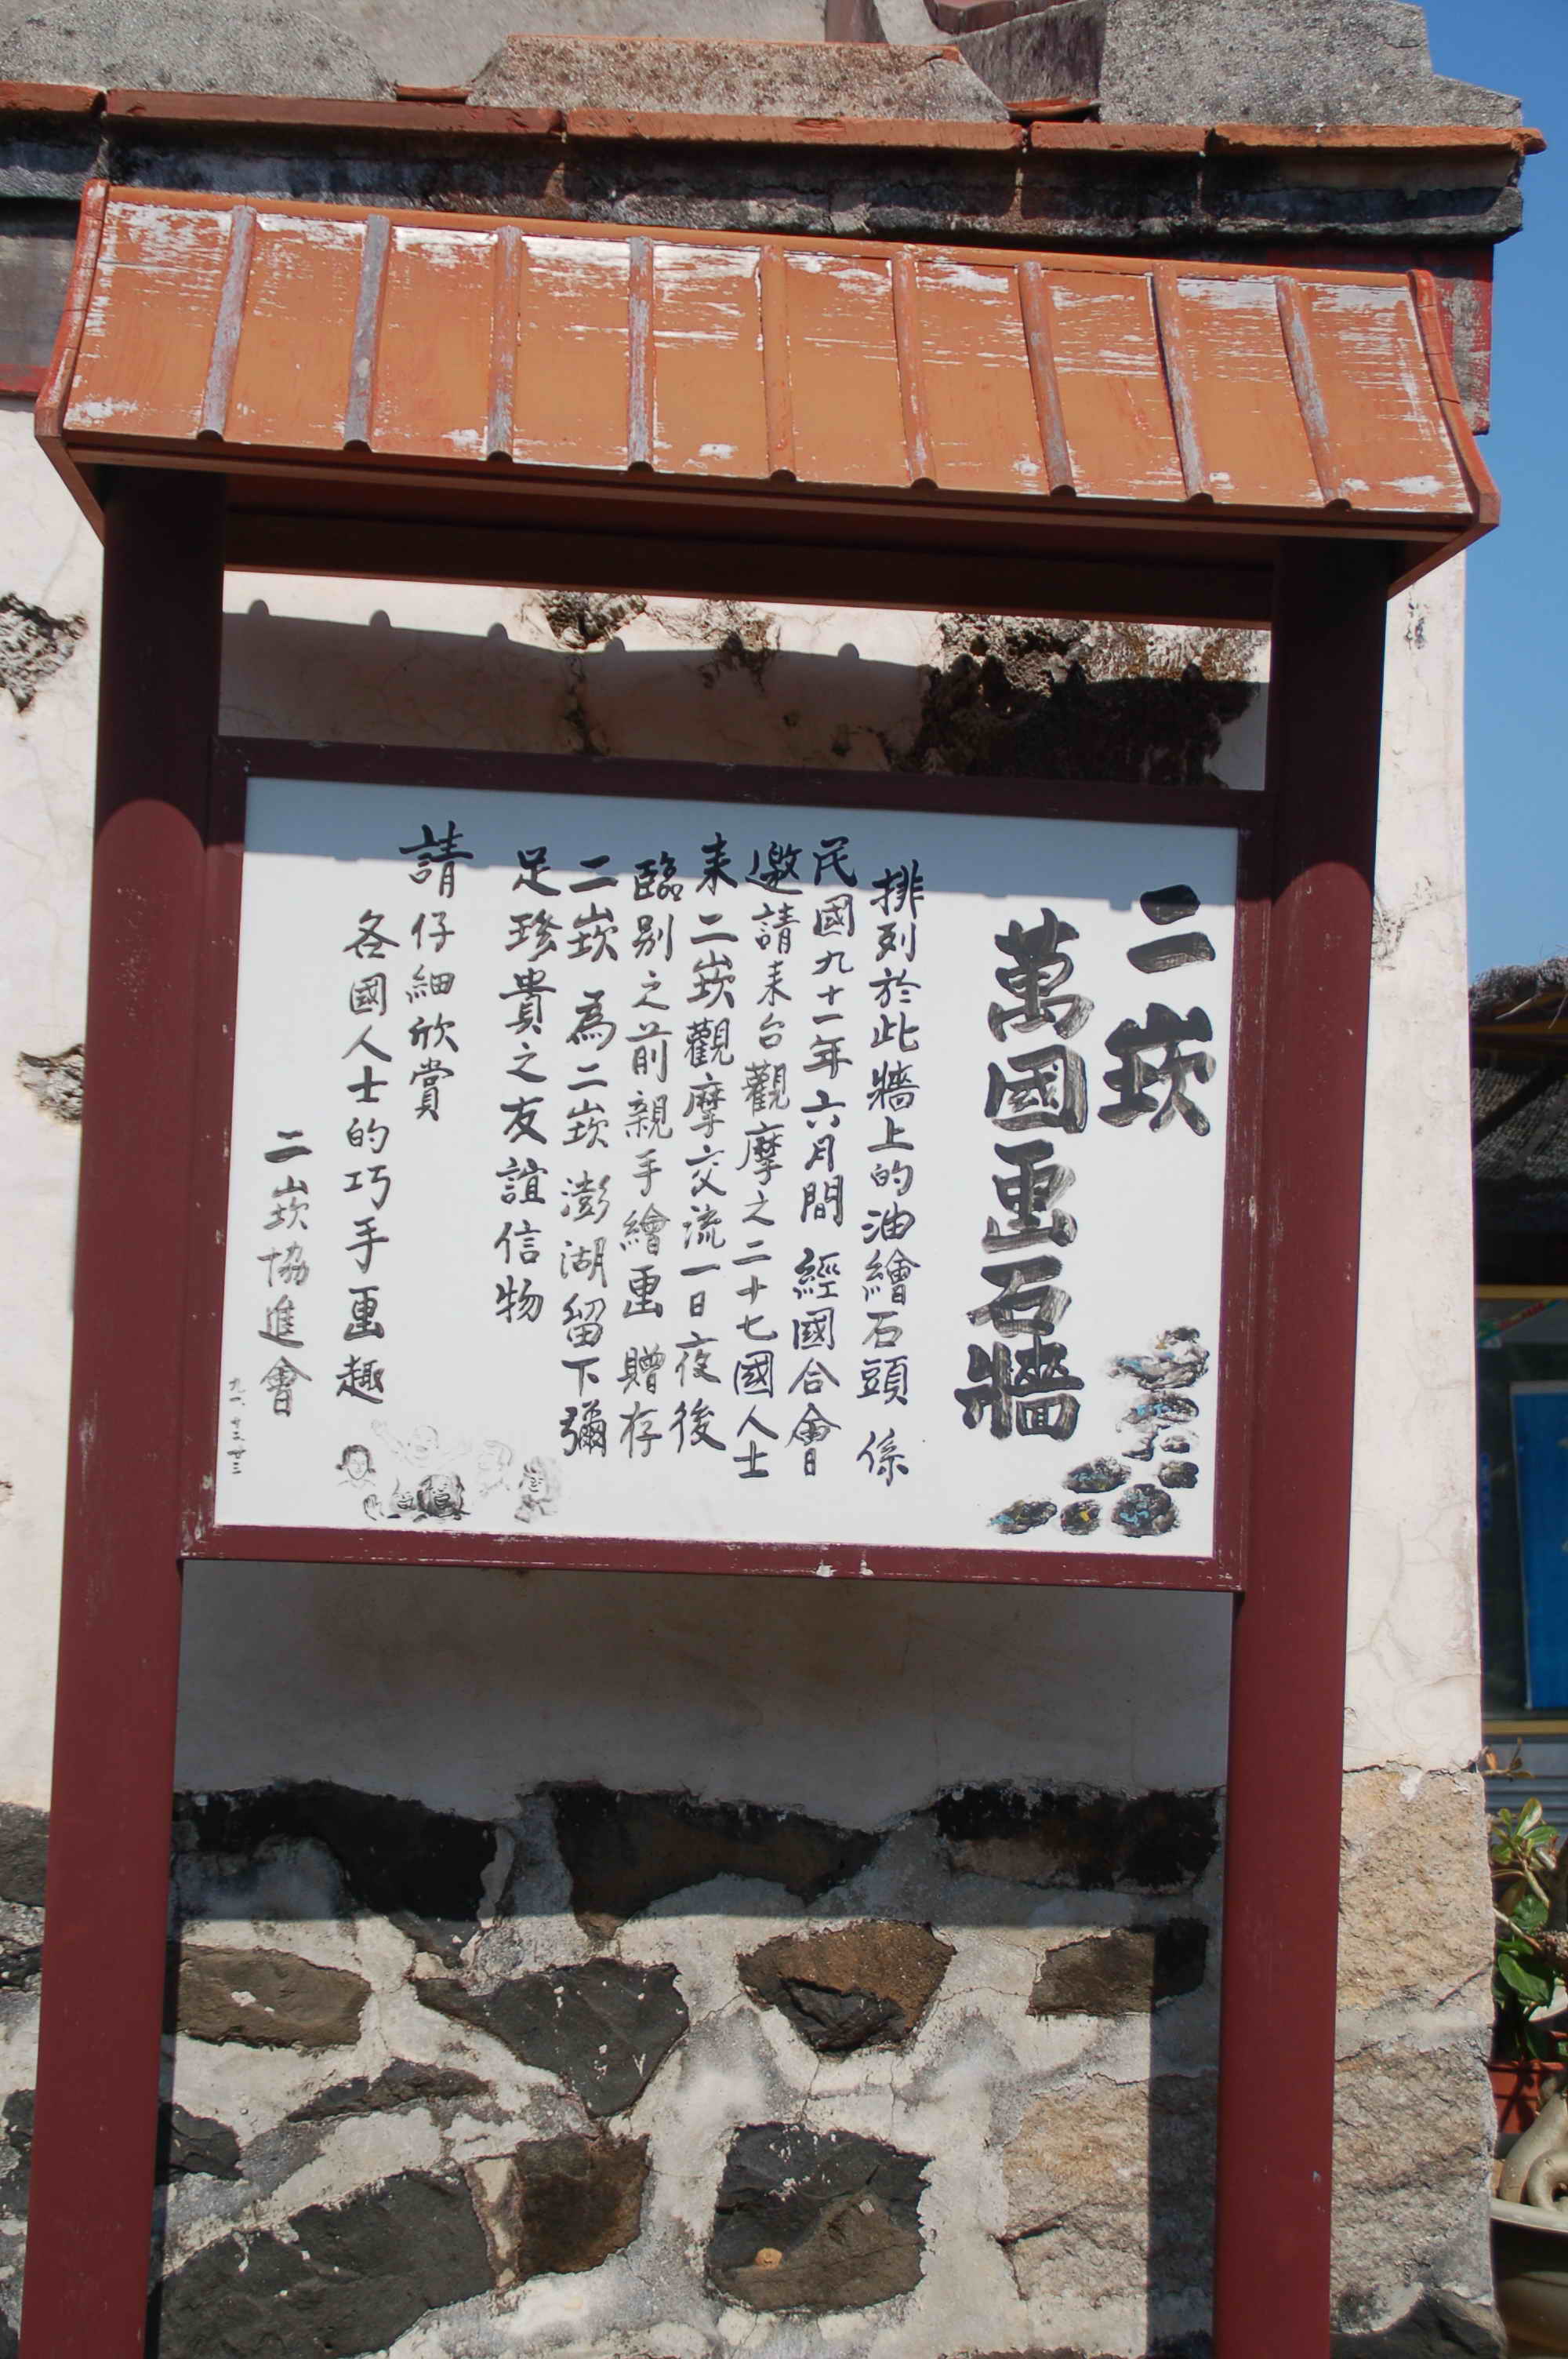 二崁
萬國画石牆
排列於此牆上的油繪石頭 係
民國九十一年六月間 經國合會
邀請来台觀摩之二十七國人士
来二崁觀摩交流一日夜後
臨別之前親手繪画 贈存
二崁 為二崁 澎湖留下彌
足珍貴之友誼信物
請仔細欣賞
各國人士的巧手画趣
二崁協進會